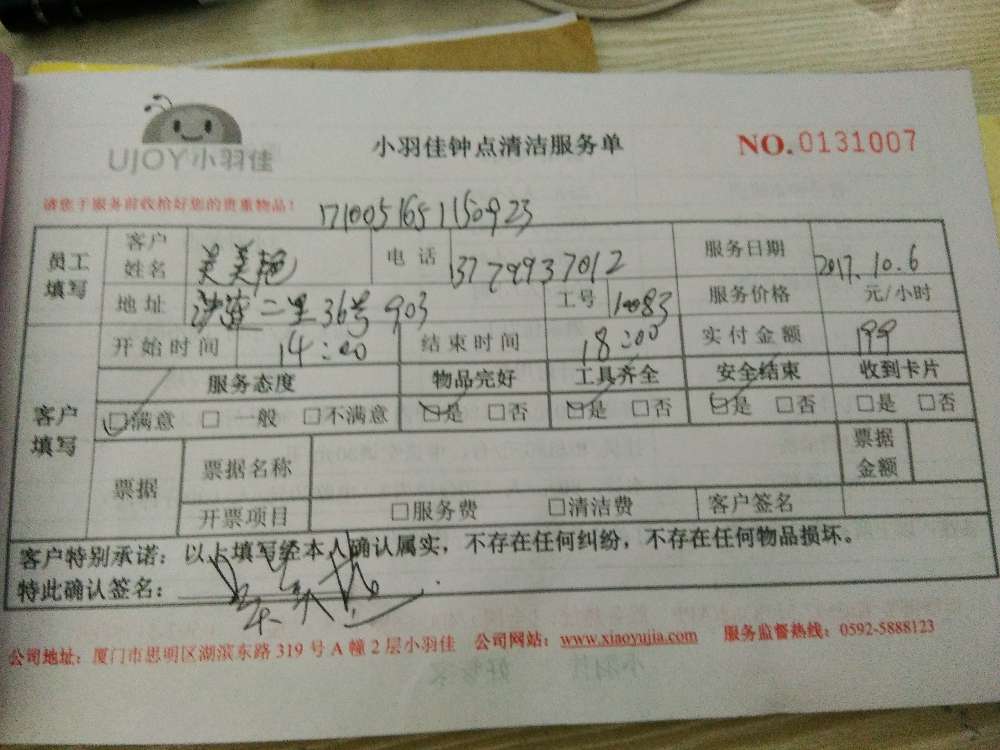 UJOY小羽佳
小羽佳钟点清洁服务单
NO.0131007
请您于服务前收拾好您的贵重物品！
1710051651150923
员工填写 客户姓名 吴美艳 电话 13779937012 服务日期 2017.10.6
地址 二里36号903 工号 10083 服务价格 元/小时
开始时间 14:00 结束时间 18:00 实付金额 199
客户填写 服务态度 物品完好 工具齐全 安全结束 收到卡片
☑满意 □一般 □不满意 ☑是 □否 ☑是 □否 ☑是 □否 □是 □否
票据 票据名称 票据金额
开票项目 □服务费 □清洁费 客户签名
客户特别承诺：以上填写经本人确认属实，不存在任何纠纷，不存在任何物品损坏。
特此确认签名：
公司地址：厦门市思明区湖滨东路319号A幢2层小羽佳 公司网站：www.xiaoyujia.com 服务监督热线：0592-5888123